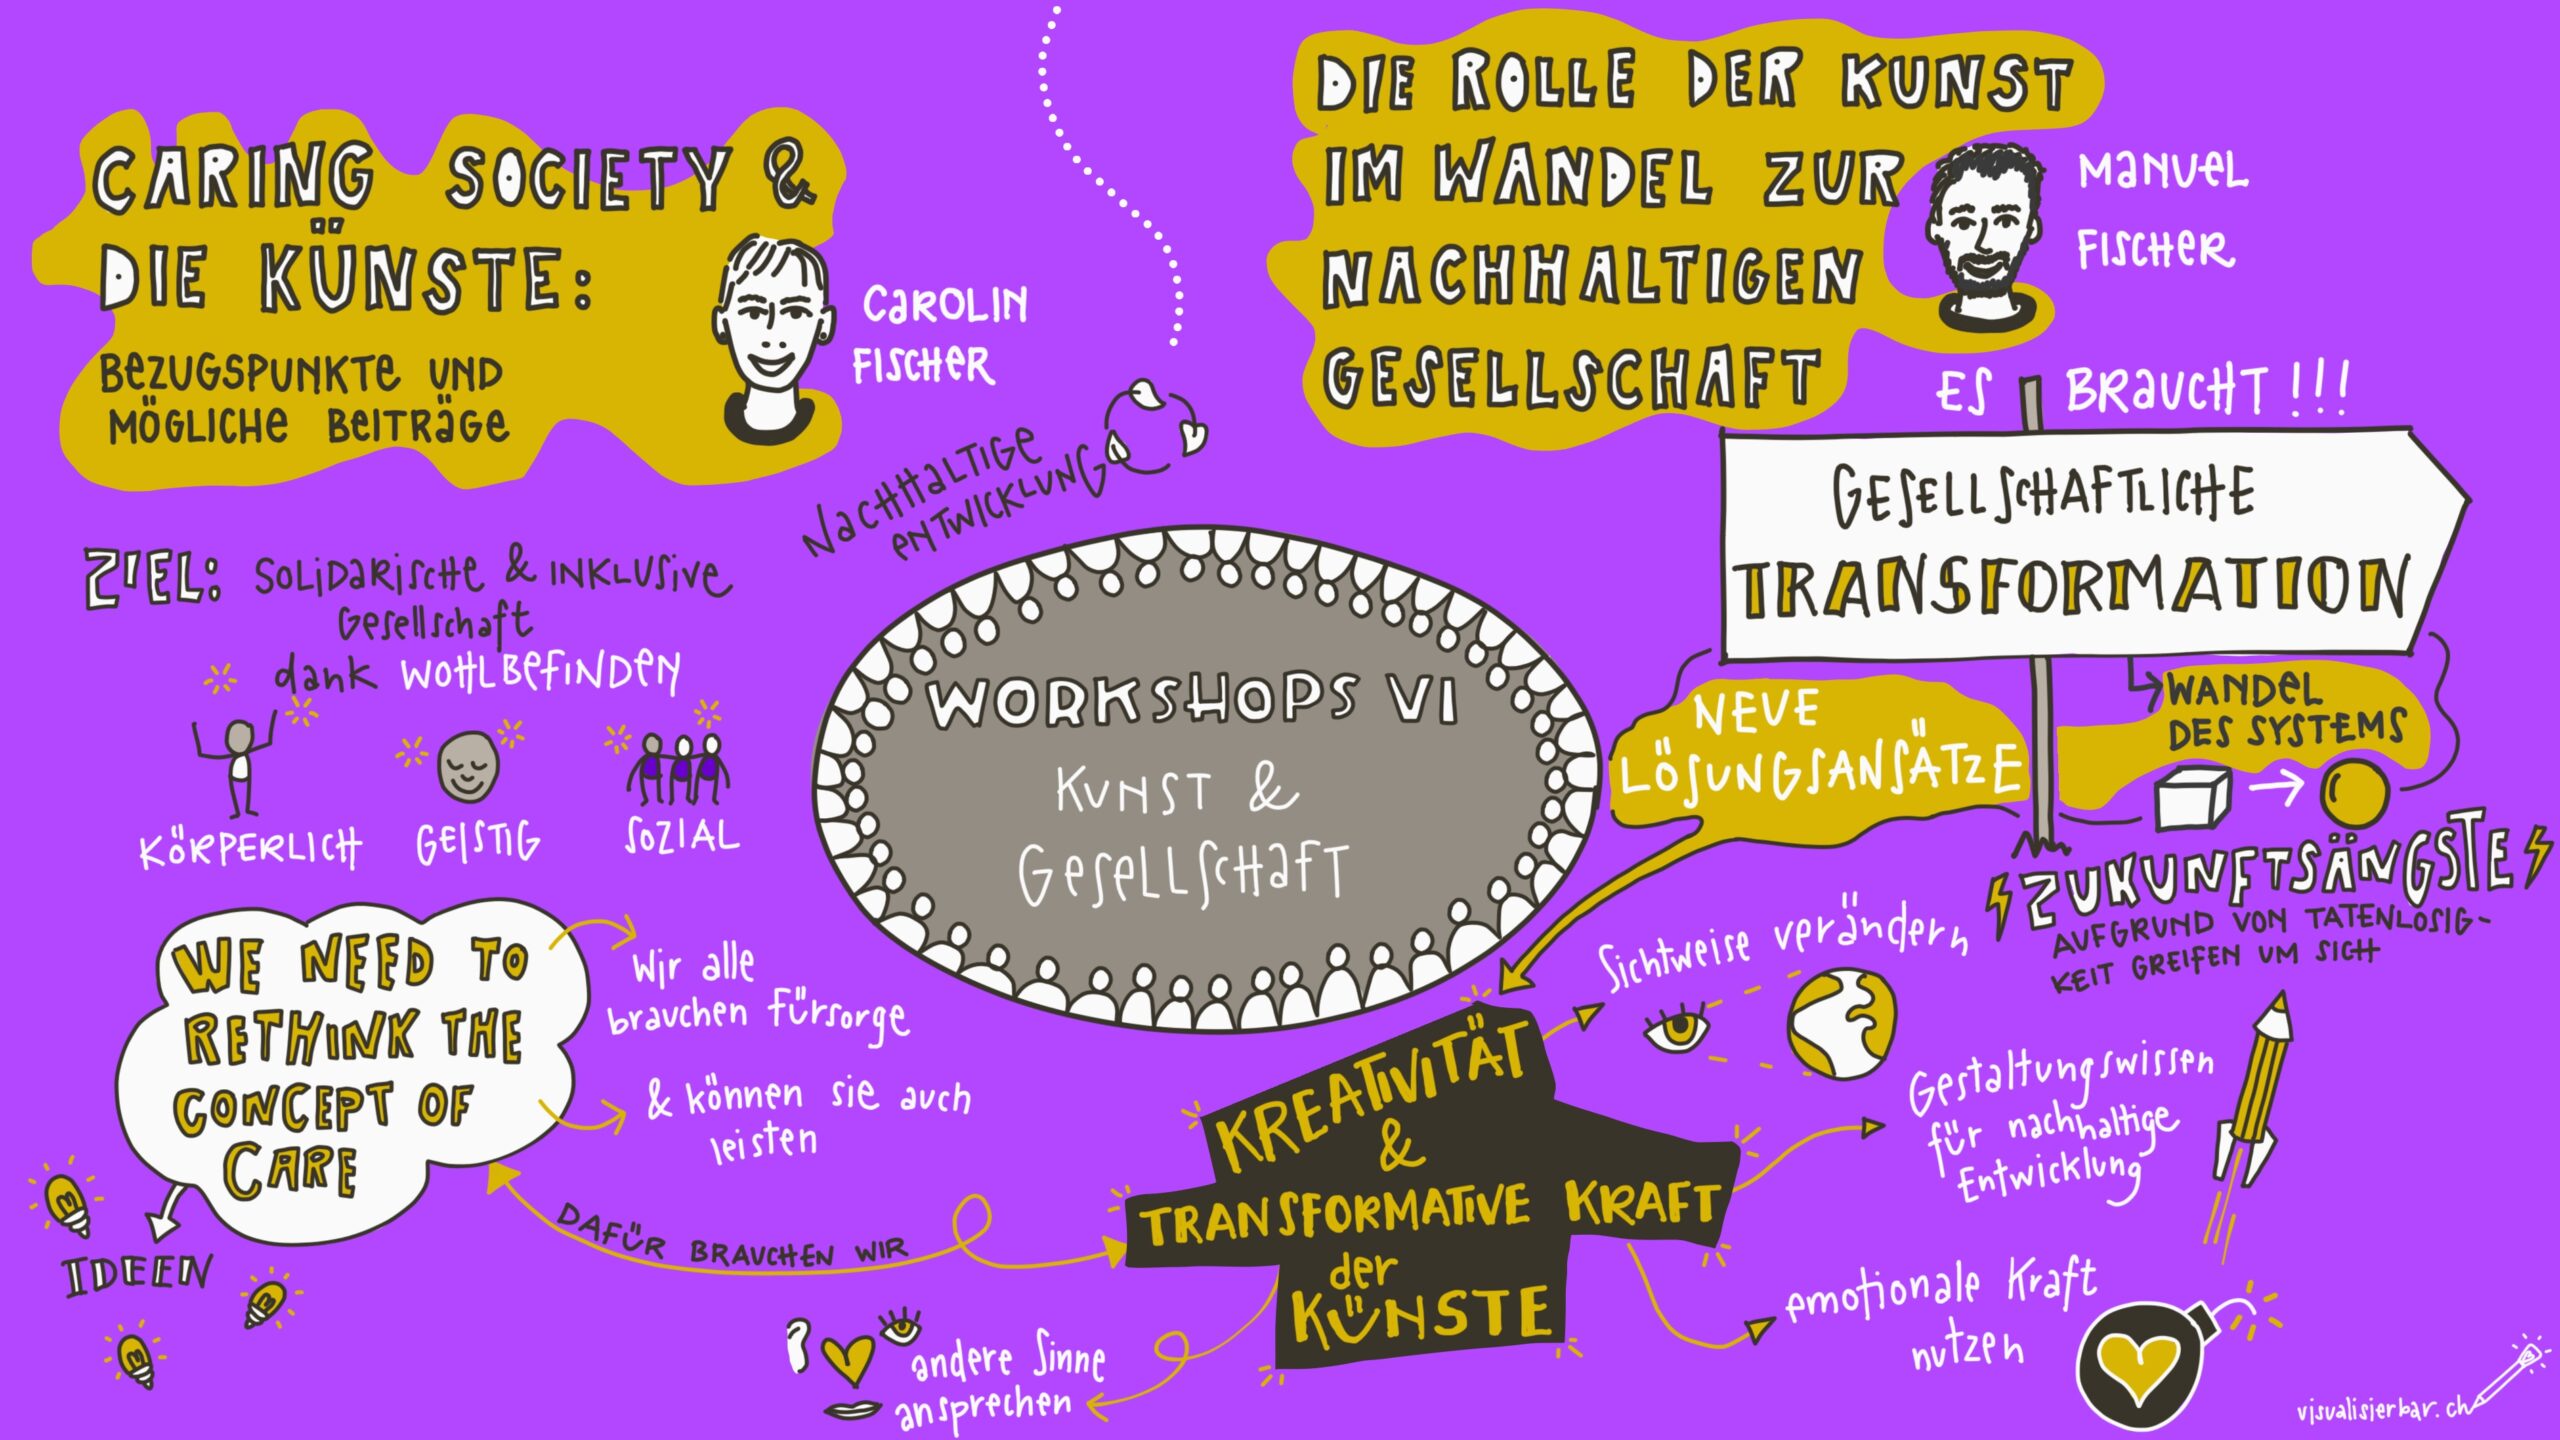 CARING SOCIETY &
DIE KÜNSTE:
BEZUGSPUNKTE UND
MÖGLICHE BEITRÄGE
CAROLIN
FISCHER
NACHHALTIGE
ENTWICKLUNG
ZIEL: SOLIDARISCHE & INKLUSIVE
Gesellschaft
dank WOHLBEFINDEN
KÖRPERLICH
GEISTIG
SOZIAL
WE NEED TO
RETHINK THE
CONCEPT OF
CARE
Wir alle
brauchen Fürsorge
& können sie auch
leisten
IDEEN
DAFÜR BRAUCHEN WIR
WORKSHOPS VI
KUNST &
GESELLSCHAFT
DIE ROLLE DER KUNST
IM WANDEL ZUR
NACHHALTIGEN
GESELLSCHAFT
MANUEL
FISCHER
ES BRAUCHT!!!
GESELLSCHAFTLICHE
TRANSFORMATION
WANDEL
DES SYSTEMS
NEUE
LÖSUNGSANSÄTZE
ZUKUNFTSÄNGSTE
AUFGRUND VON TATENLOSIG-
KEIT GREIFEN UM SICH
KREATIVITÄT
&
TRANSFORMATIVE KRAFT
der
KÜNSTE
Sichtweise verändern
Gestaltungswissen
für nachhaltige
Entwicklung
emotionale Kraft
nutzen
andere Sinne
ansprechen
visualisierbar.ch